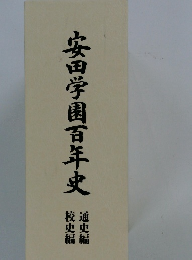 安田学園百年史
通史編
校史編